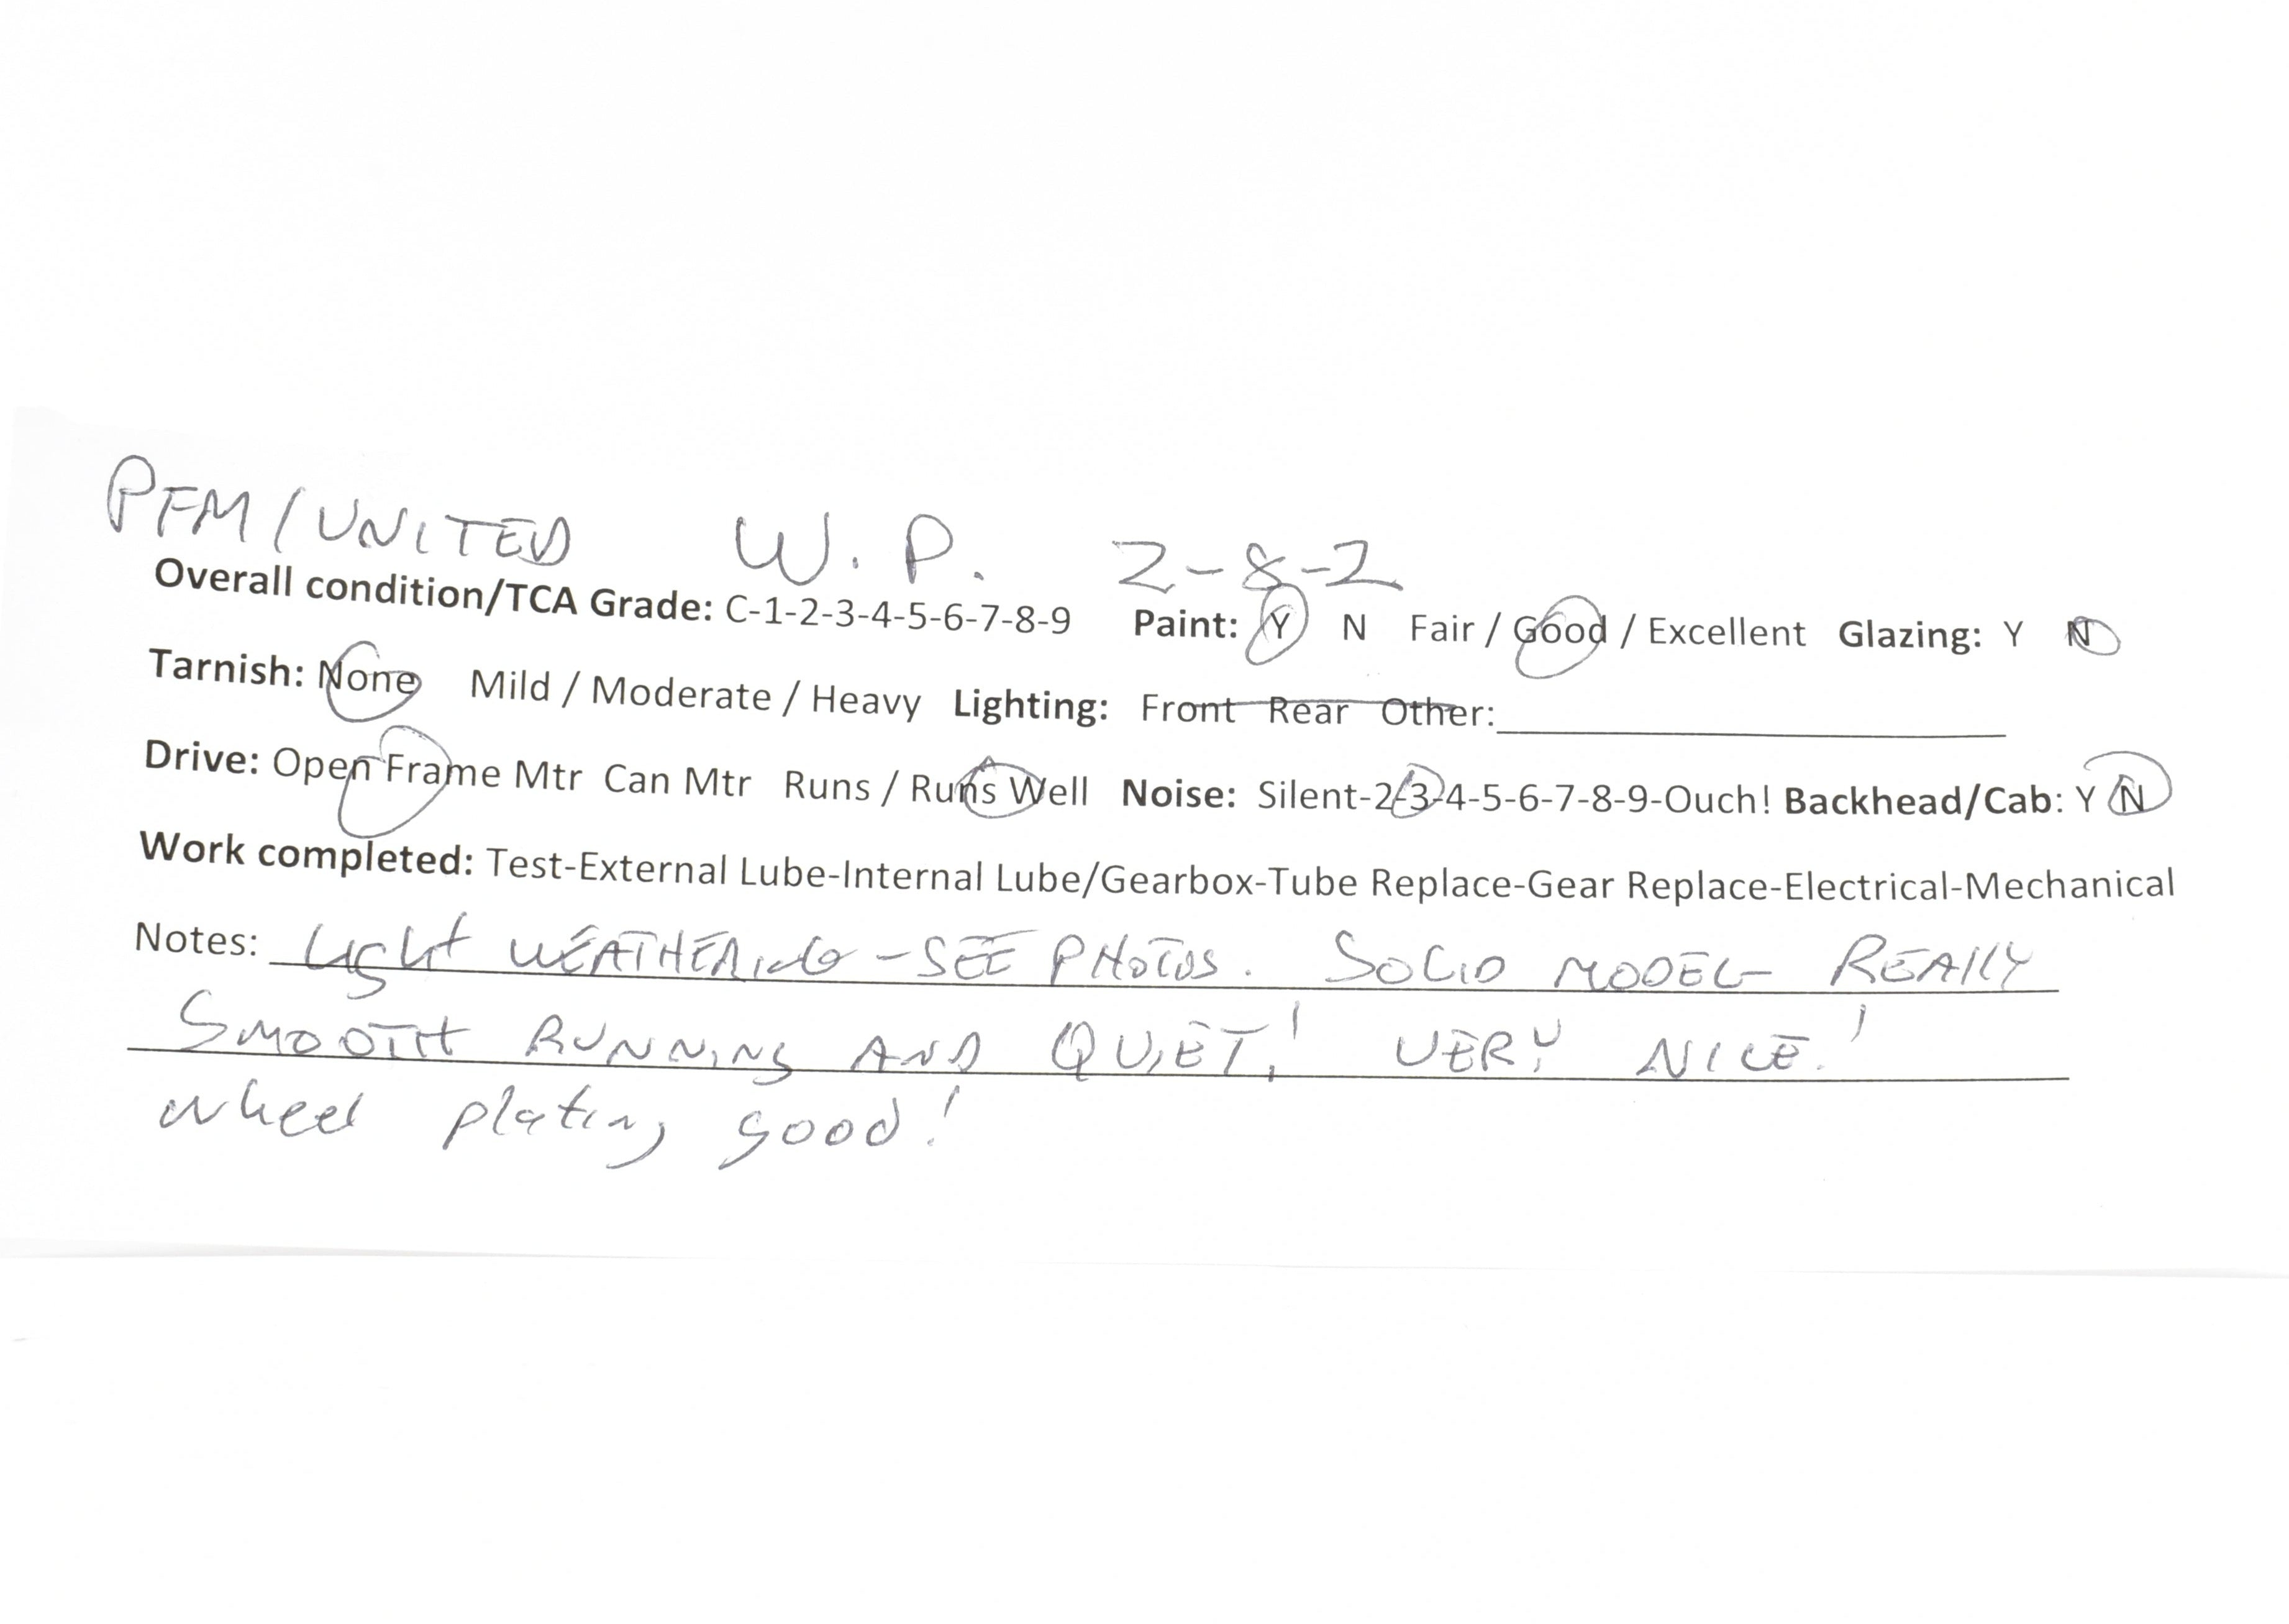 PFM/UNITED W.P. 2-8-2
Overall condition/TCA Grade: C-1-2-3-4-5-6-7-8-9 Paint: Y N Fair / Good / Excellent Glazing: Y N
Tarnish: None Mild / Moderate / Heavy Lighting: Front Rear Other:
Drive: Open Frame Mtr Can Mtr Runs / Runs Well Noise: Silent-2-3-4-5-6-7-8-9-Ouch! Backhead/Cab: Y N
Work completed: Test-External Lube-Internal Lube/Gearbox-Tube Replace-Gear Replace-Electrical-Mechanical
Notes: Light WEATHERING - SEE PHOTOS. SOLID MODEL- REALLY
SMOOTH RUNNING AND QUIET! VERY NICE!
wheel plating good!